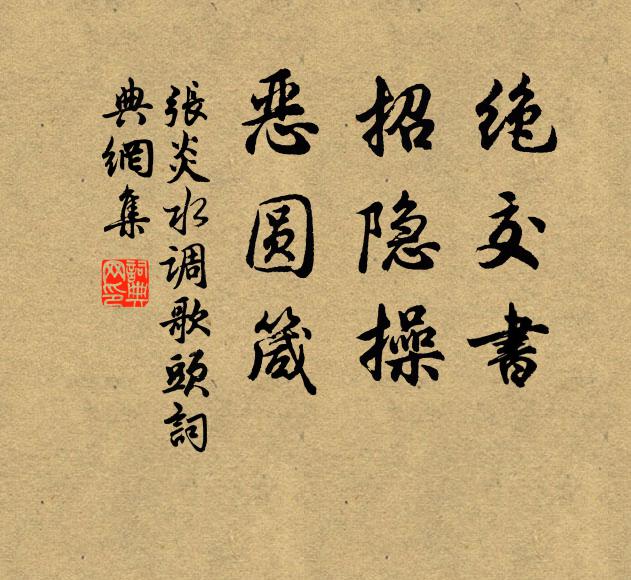 绝交书
招隐操
恶圆箴
張炎水調歌頭詞
典網集
詞典
网印